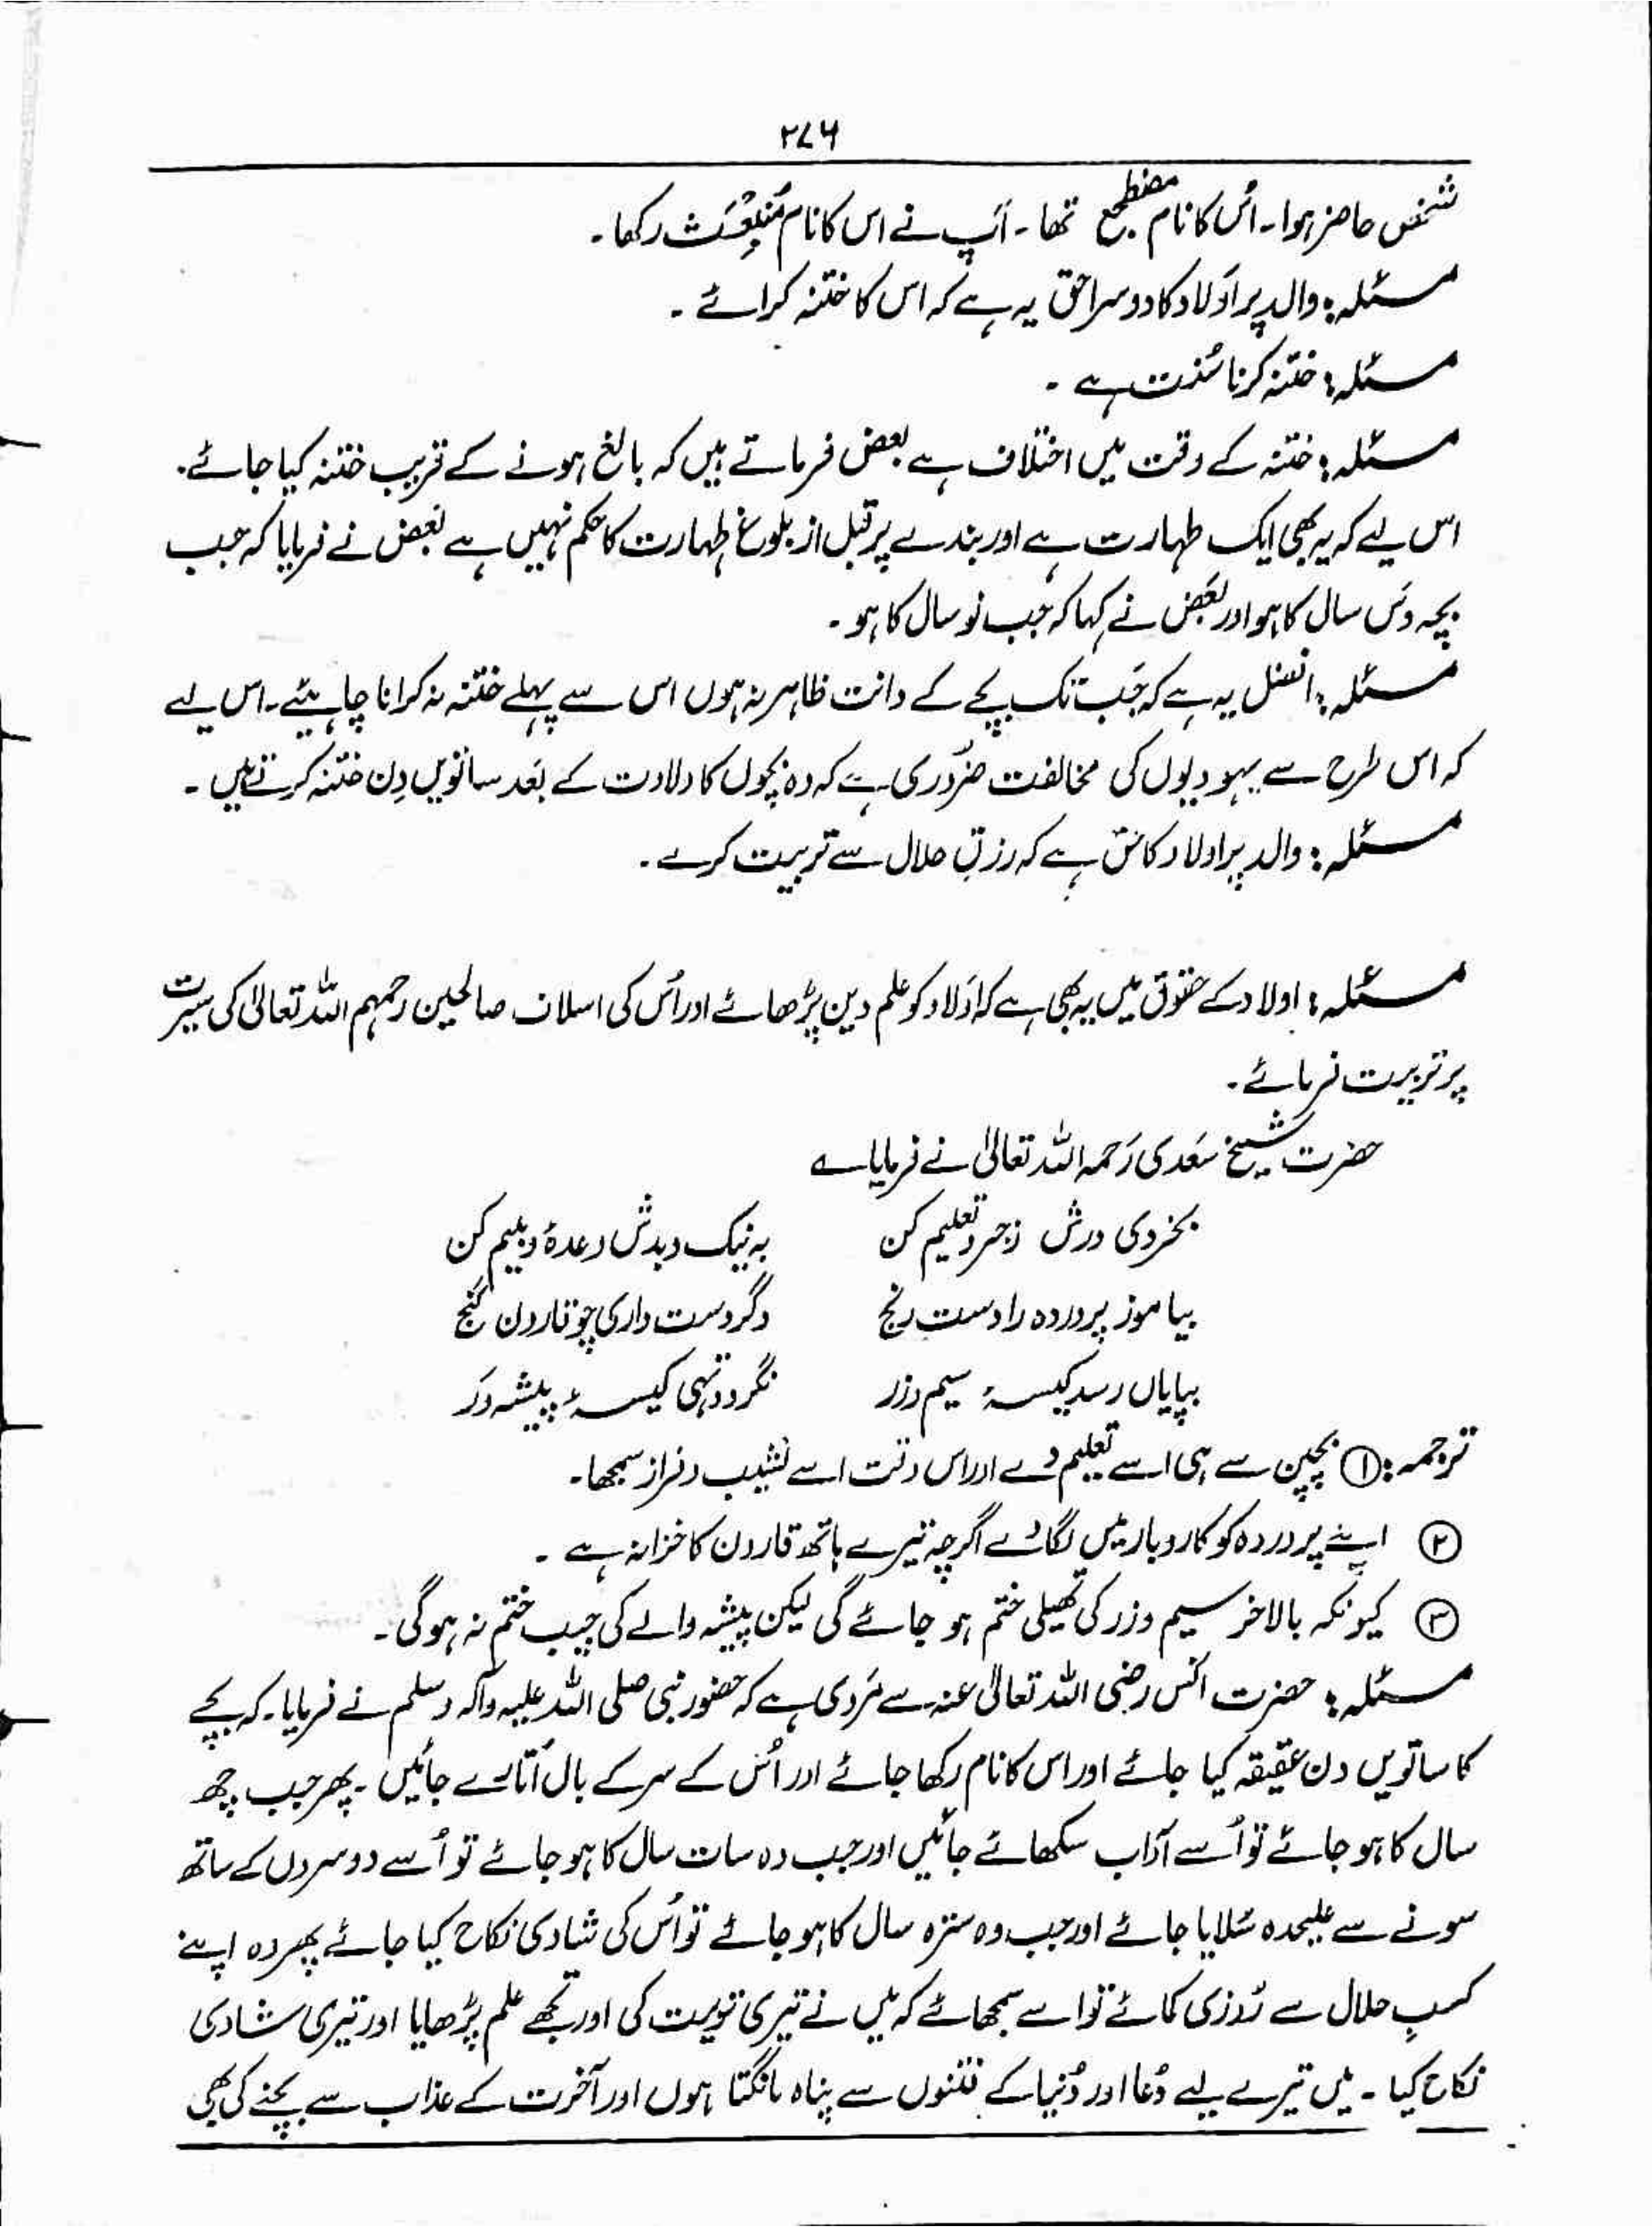 ۲۷۶
شخص حاضر ہوا۔ اُس کا نام مضطجع تھا۔ آپ نے اس کا نام مُنْبَعِثْ رکھا۔
مسئلہ: والد پر اَولاد کا دوسرا حق یہ ہے کہ اس کا ختنہ کرائے۔
مسئلہ: ختنہ کرنا سُنت ہے۔
مسئلہ: ختنہ کے وقت میں اختلاف ہے بعض فرماتے ہیں کہ بالغ ہونے کے قریب ختنہ کیا جائے۔
اس لیے کہ یہ بھی ایک طہارت ہے اور بندے پر قبل از بلوغ طہارت کا حکم نہیں ہے بعض نے فرمایا کہ جب
بچہ دَس سال کا ہو اور بعض نے کہا کہ جب نو سال کا ہو۔
مسئلہ: افضل یہ ہے کہ جَب تک بچے کے دانت ظاہر نہ ہوں اس سے پہلے ختنہ نہ کرانا چاہیئے۔ اس لیے
کہ اس طرح سے یہودیوں کی مخالفت ضرُوری ہے کہ وہ بچوں کا ولادت کے بعَد ساتویں دِن ختنہ کرتے ہیں۔
مسئلہ: والد پر اولاد کا حق ہے کہ رزقِ حلال سے تربیت کرے۔
مسئلہ: اولاد کے حقوق میں یہ بھی ہے کہ اَولاد کو علم دین پڑھائے اور اُس کی اسلاف صالحین رحمہم اللہ تعالیٰ کی سیرت
پر تربیت فرمائے۔
حضرت شیخ سَعدی رَحمہ اللہ تعالیٰ نے فرمایا ے
بخردی درش زجر و تعلیم کن بہ نیک و بدش وعدۂ و بیم کن
بیاموز پروردہ را دست رنج وگر دست داری چو قارون گنج
بپایاں رسد کیسۂ سیم و زر نگردد تہی کیسۂ پیشہ وَر
ترجمہ: ① بچپن سے ہی اسے تعلیم دے اور اس وقت اسے نشیب و فراز سمجھا۔
② اپنے پروردہ کو کاروبار میں لگا دے اگرچہ تیرے ہاتھ قارون کا خزانہ ہے۔
③ کیونکہ بالاخر سیم و زر کی تھیلی ختم ہو جائے گی لیکن پیشہ والے کی جیب ختم نہ ہوگی۔
مسئلہ: حضرت انس رضی اللہ تعالیٰ عنہ سے مَروی ہے کہ حضور نبی صلی اللہ علیہ وآلہ وسلم نے فرمایا۔ کہ بچے
کا ساتویں دن عقیقہ کیا جائے اور اس کا نام رکھا جائے اور اُس کے سر کے بال اُتارے جائیں۔ پھر جب چھ
سال کا ہو جائے تو اُسے آداب سکھائے جائیں اور جب وہ سات سال کا ہو جائے تو اُسے دوسروں کے ساتھ
سونے سے علیحدہ سُلایا جائے اور جب وہ سترہ سال کا ہو جائے تو اُس کی شادی نکاح کیا جائے پھر وہ اپنے
کسبِ حلال سے رُوزی کمائے تو اسے سمجھائے کہ میں نے تیری تربیت کی اور تجھے علم پڑھایا اور تیری شادی
نکاح کیا۔ میں تیرے لیے دُعا اور دُنیا کے فتنوں سے پناہ مانگتا ہوں اور آخرت کے عذاب سے بچنے کی بھی